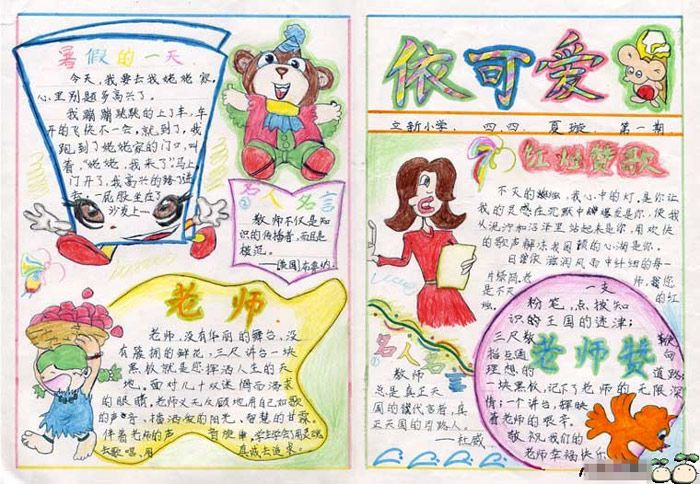 暑假的一天
今天，我要去我姥姥家，
心里别题多高兴了。
我蹦蹦跳跳的上了车，车
开的飞快不一会，就到了，我
跑到了姥姥家的门口，叫
着，“姥姥，我来了”马上
门开了，我高兴的
一屁股坐在了
沙发上……
名人名言
②
教师不仅是知
识的传播者，而且是
模范。
老师
老师，没有华丽的舞台，没
有簇拥的鲜花，三尺讲台一块
黑板就是您挥洒人生的天
地。面对几十双迷惘而渴求
的眼睛，老师义无反顾地用自己如歌
的声音，播洒爱的阳光，智慧的甘霖。
伴着老师的声
去歌唱，用
真诚去追求。
依可爱
立新小学、四、四、夏璇 第一期
红烛赞歌
不灭的蜡烛，我心中的灯，是你让
我的灵感在沉默中爆发是你，使我
从泥泞和沼泽里站起来是你，用欢快
的歌声解冻我困顿的心湖是你。
日常依
是不灭
烛。
名人名言
①
教师
总是真正天
国的代言者，真
正天国的引路人。
——杜威
一支
粉笔，点拨知
识的王国的迷津；
三尺教
指
理想的
道路；
一块黑板，记下了老师的无限深
情；一个讲台，辉映
着老师的艰辛。
敬祝我们的
老师幸福快乐
老师赞